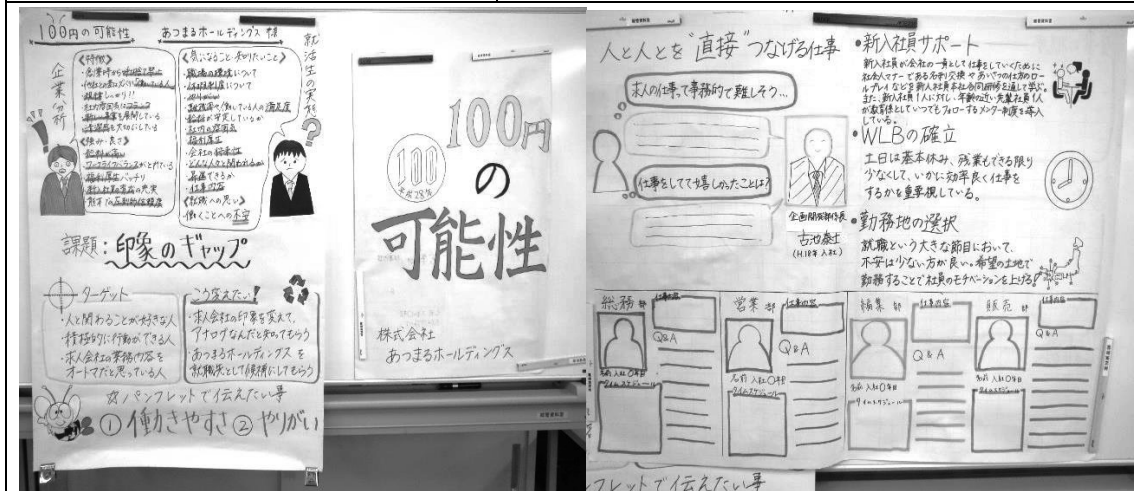 100円の可能性 あつまるホールディングス 様
企業分析
《特徴》
規模しっかり!!
《強み・良さ》
給料が高い
ワークライフバランスがとれている
福利厚生バッチリ
就活生の実態
《気になること・知りたいこと》
職場の環境について
給料が安定しているか
社内の雰囲気
福利厚生
会社の将来性
どんな人々と関われるか
昇進できるか
仕事内容
《就職への思い》
働くことへの不安
課題:印象のギャップ
ターゲット
・人と関わることが好きな人
・積極的に行動ができる人
・求人会社の業務内容を
オートマだと思っている人
こう変えたい!
・求人会社の印象を変えて、
アナログなんだと知ってもらう
・あつまるホールディングスを
就職先として候補にしてもらう
☆パンフレットで伝えたい事
①働きやすさ②やりがい
100円
の
可能性
100
平成28年
株式会社
あつまるホールディングス
人と人とを"直接"つなげる仕事
求人の仕事って事務的で難しそう…
仕事をしてて嬉しかったことは?
企画開発部係長
古池泰士
(H.18年入社)
・新入社員サポート
新入社員が会社の一員として仕事をしていくために
社会人マナーである名刺交換やあいさつの仕方のロー
ルプレイなどを新入社員本社合同研修を通して学ぶ。
また、新入社員1人に対し、年齢の近い先輩社員1人
が教育係としていつでもフォローするメンター制度を導入
している。
・WLBの確立
土日は基本休み、残業もできる限り
少なくして、いかに効率良く仕事を
するかを重要視している。
・勤務地の選択
就職という大きな節目において、
不安は少ない方が良い。希望の土地で
勤務することで社員のモチベーションを上げる!
総務部
仕事内容
Q&A
名前 入社○年目
タイムスケジュール
営業部
仕事内容
Q&A
名前 入社○年目
タイムスケジュール
編集部
仕事内容
Q&A
名前 入社○年目
タイムスケジュール
販売部
仕事内容
Q&A
名前 入社○年目
タイムスケジュール
パンフレットで伝えたい事